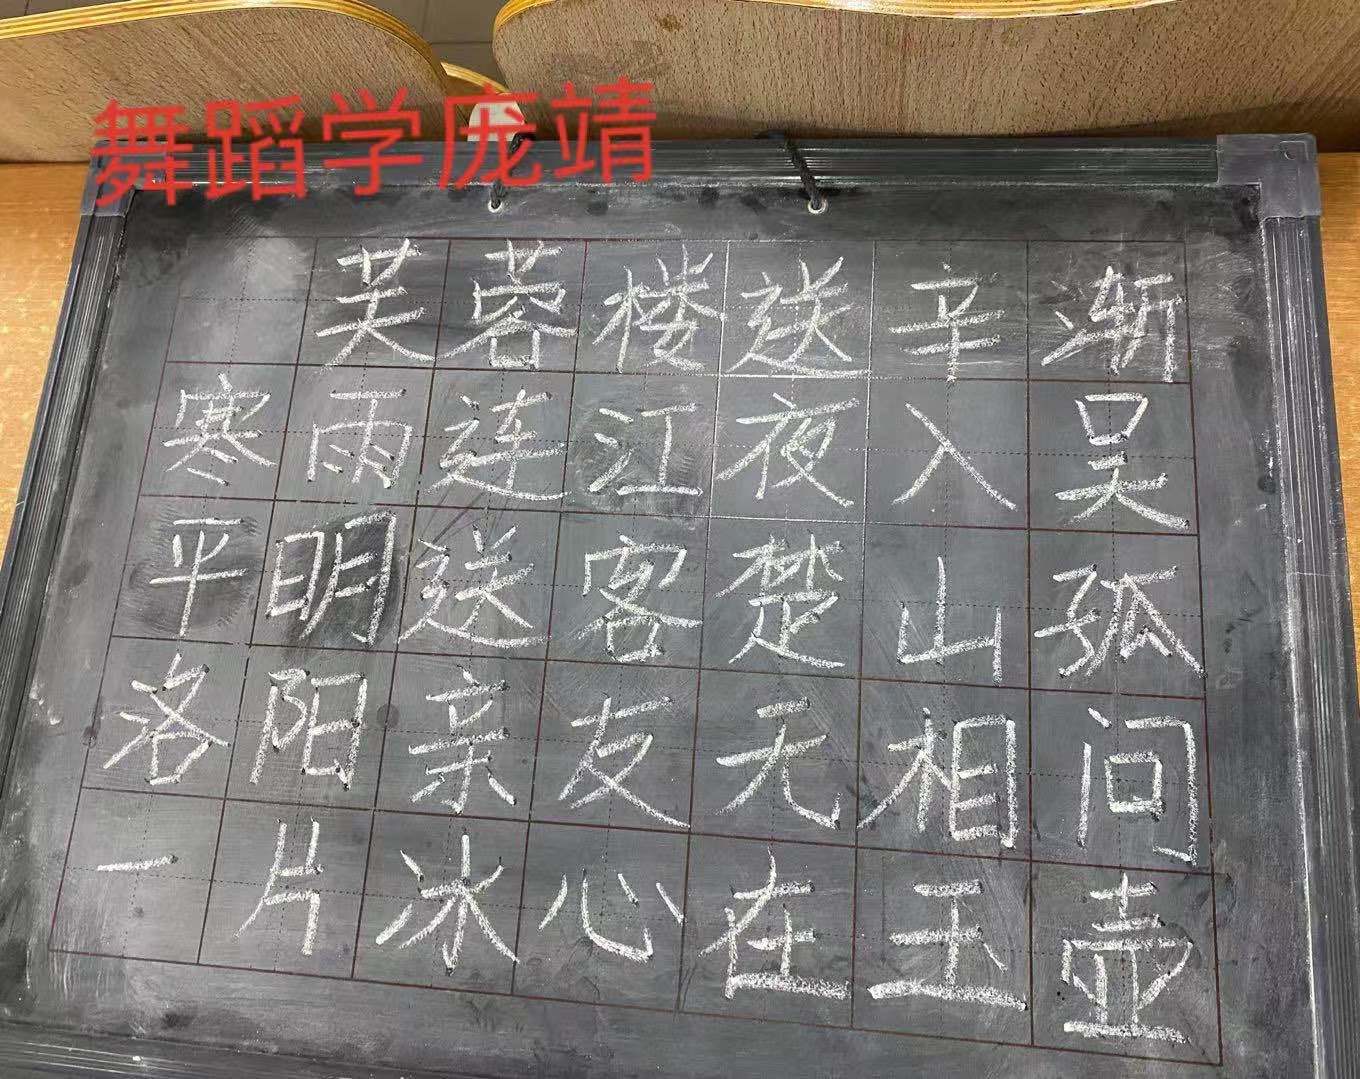 舞蹈学庞靖
芙蓉楼送辛渐
寒雨连江夜入吴
平明送客楚山孤
洛阳亲友无相问
一片冰心在玉壶